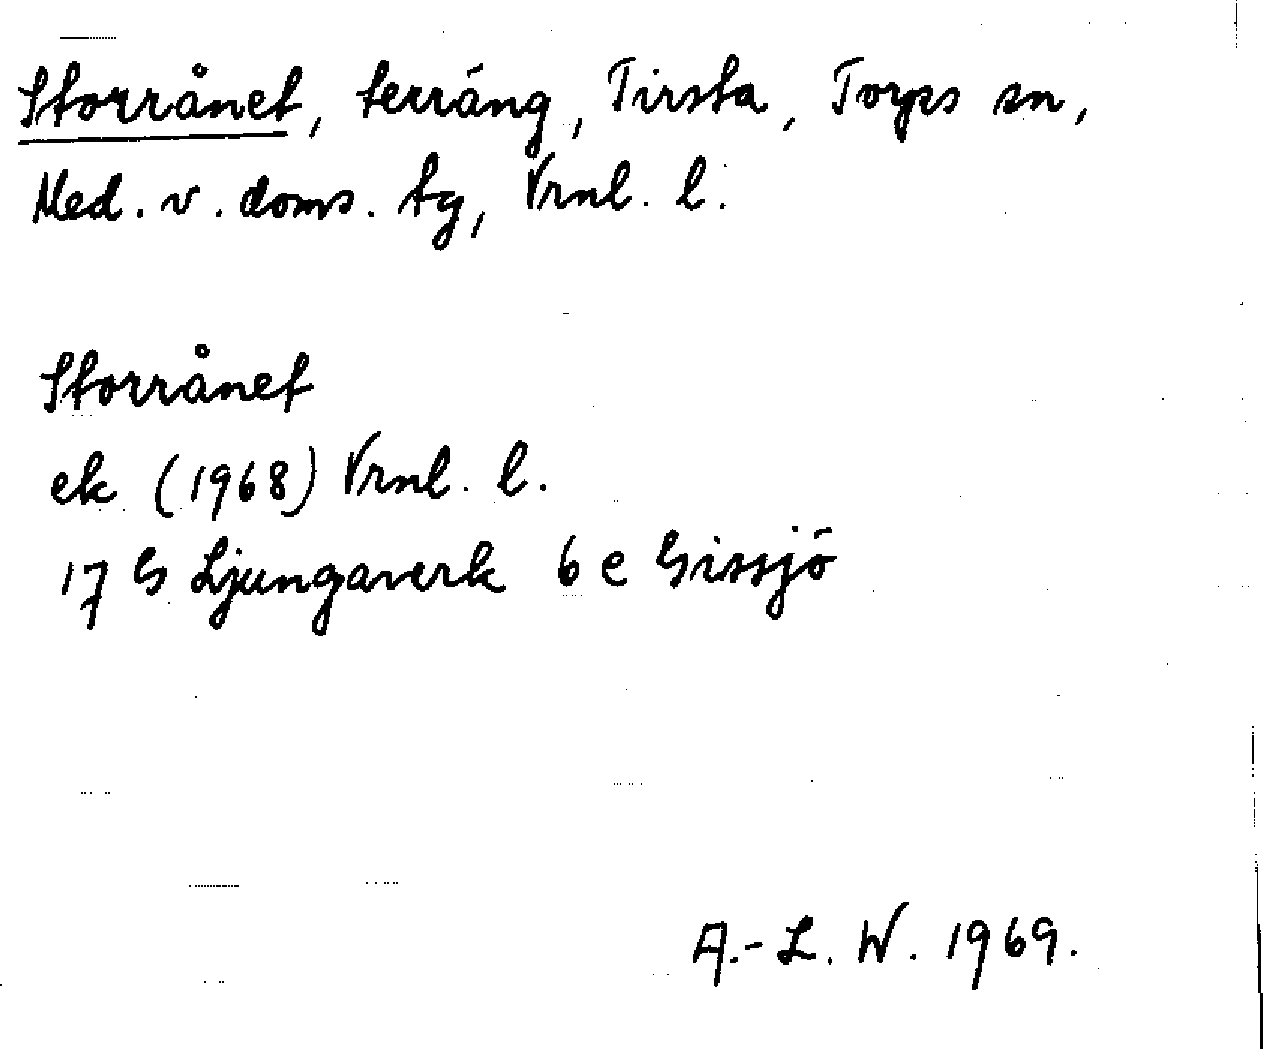 Storrånet, terräng, Tirsta, Torps sn,
Med. v. doms. tg, Vrnl. l.
Storrånet
ek (1968) Vrnl. l.
17 G Ljungaverk 6 e Gissjö
A.-L. W. 1969.